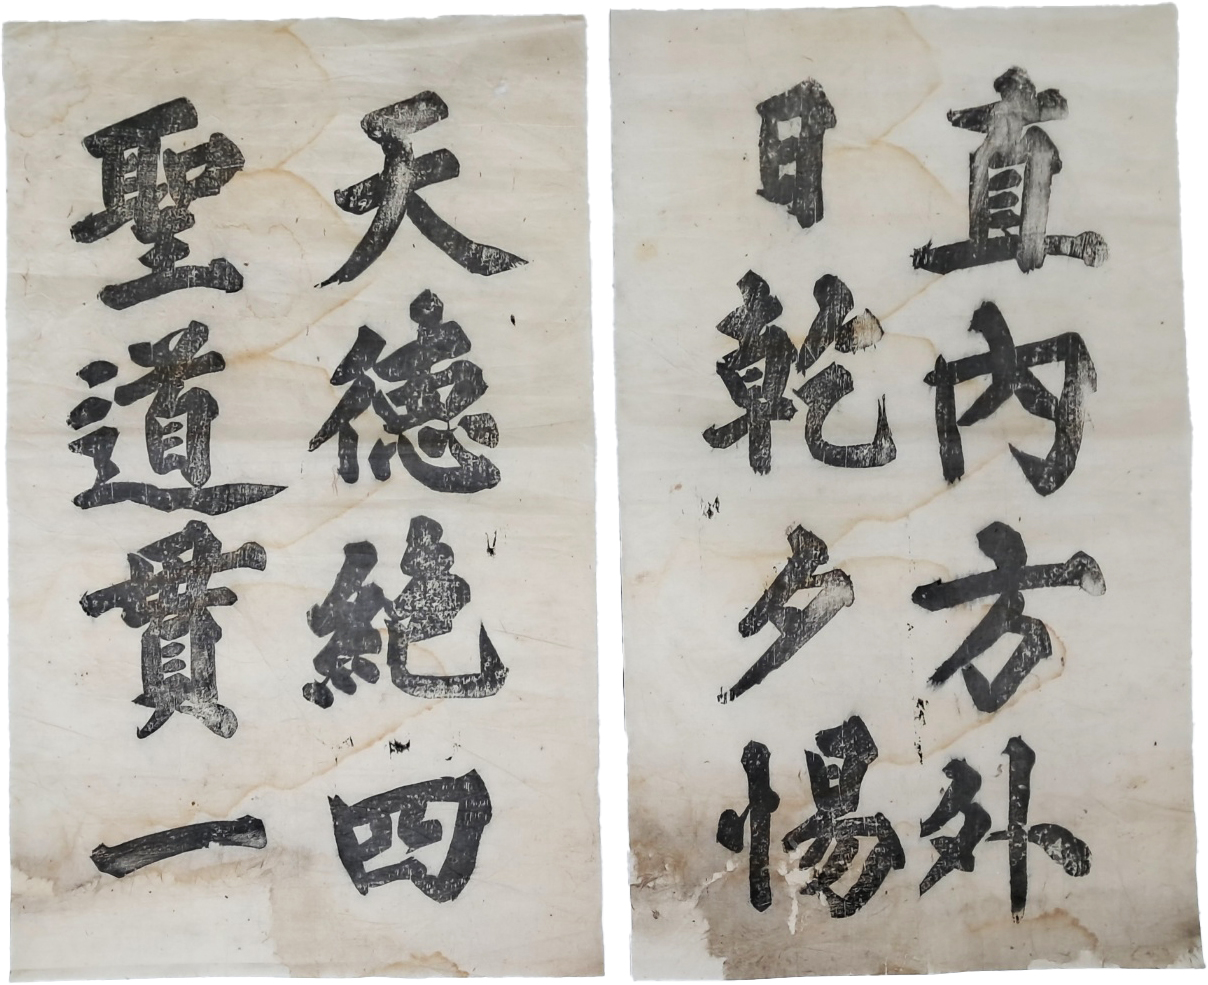 直內方外
日乾夕惕
天德絶四
聖道貫一